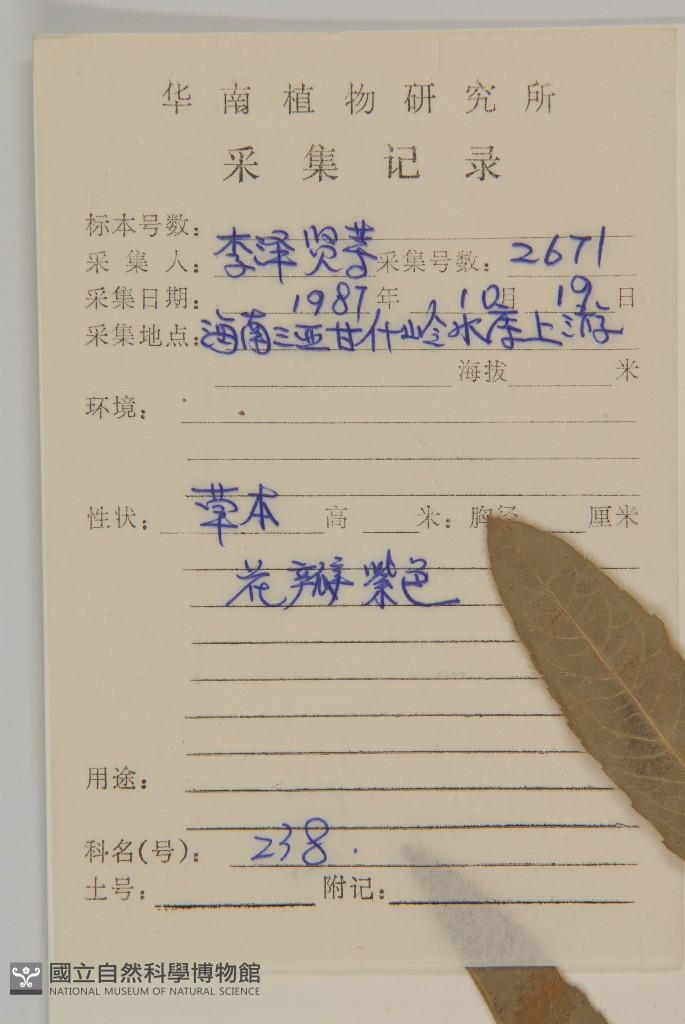 华南植物研究所
采集记录
标本号数：
采集人：李泽贤等 采集号数：2671
采集日期：1987年10月19日
采集地点：海南三亚甘什岭水库上游
海拔 米
环境：
性状：草本 高 米：胸径 厘米
花瓣紫色
用途：
科名(号)：238.
土号： 附记：
國立自然科學博物館
NATIONAL MUSEUM OF NATURAL SCIENCE